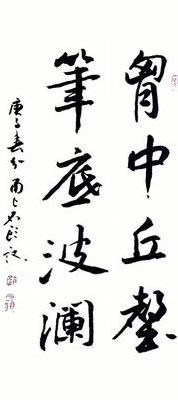 胷中丘壑
筆底波澜
庚子春分